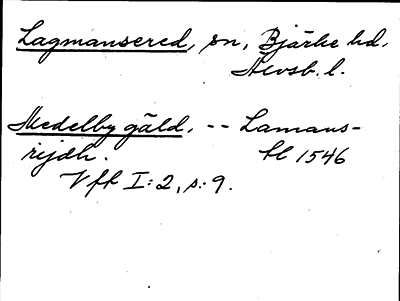 Lagmansered, sn, Bjärke hd,
Älvsb. l.
Medelby gäld, -- Lamans-
rijdh. kl 1546
Vfk I:2, s. 9.